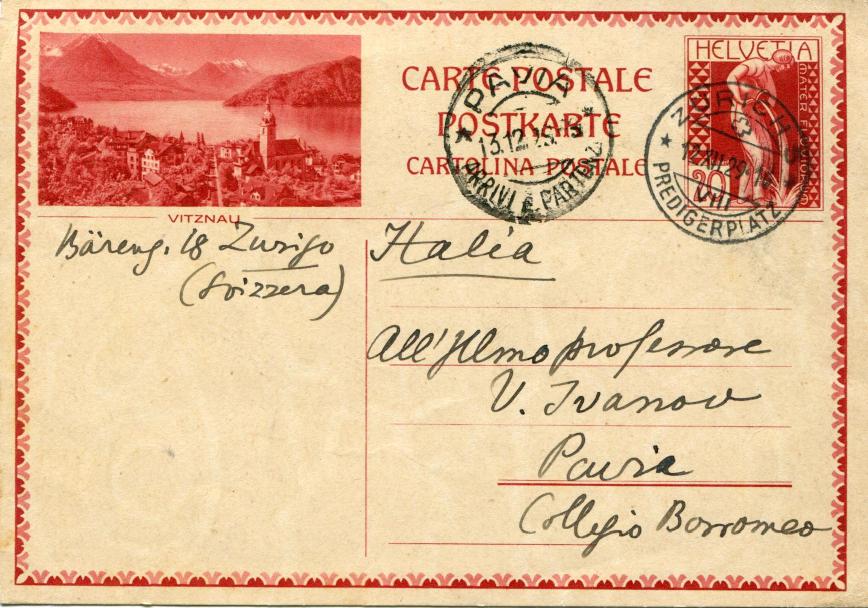 CARTE POSTALE
POSTKARTE
CARTOLINA POSTALE
HELVETIA
MATER
20
PAVIA
13.12.29.
ARRIVI E PARTENZ
ZÜRICH 3
12.XII.29.
VIII
PREDIGERPLATZ
VITZNAU
Bäreng. 18 Zurigo
(Svizzera)
Italia
All'Illmo professore
V. Ivanov
Pavia
Collegio Borromeo